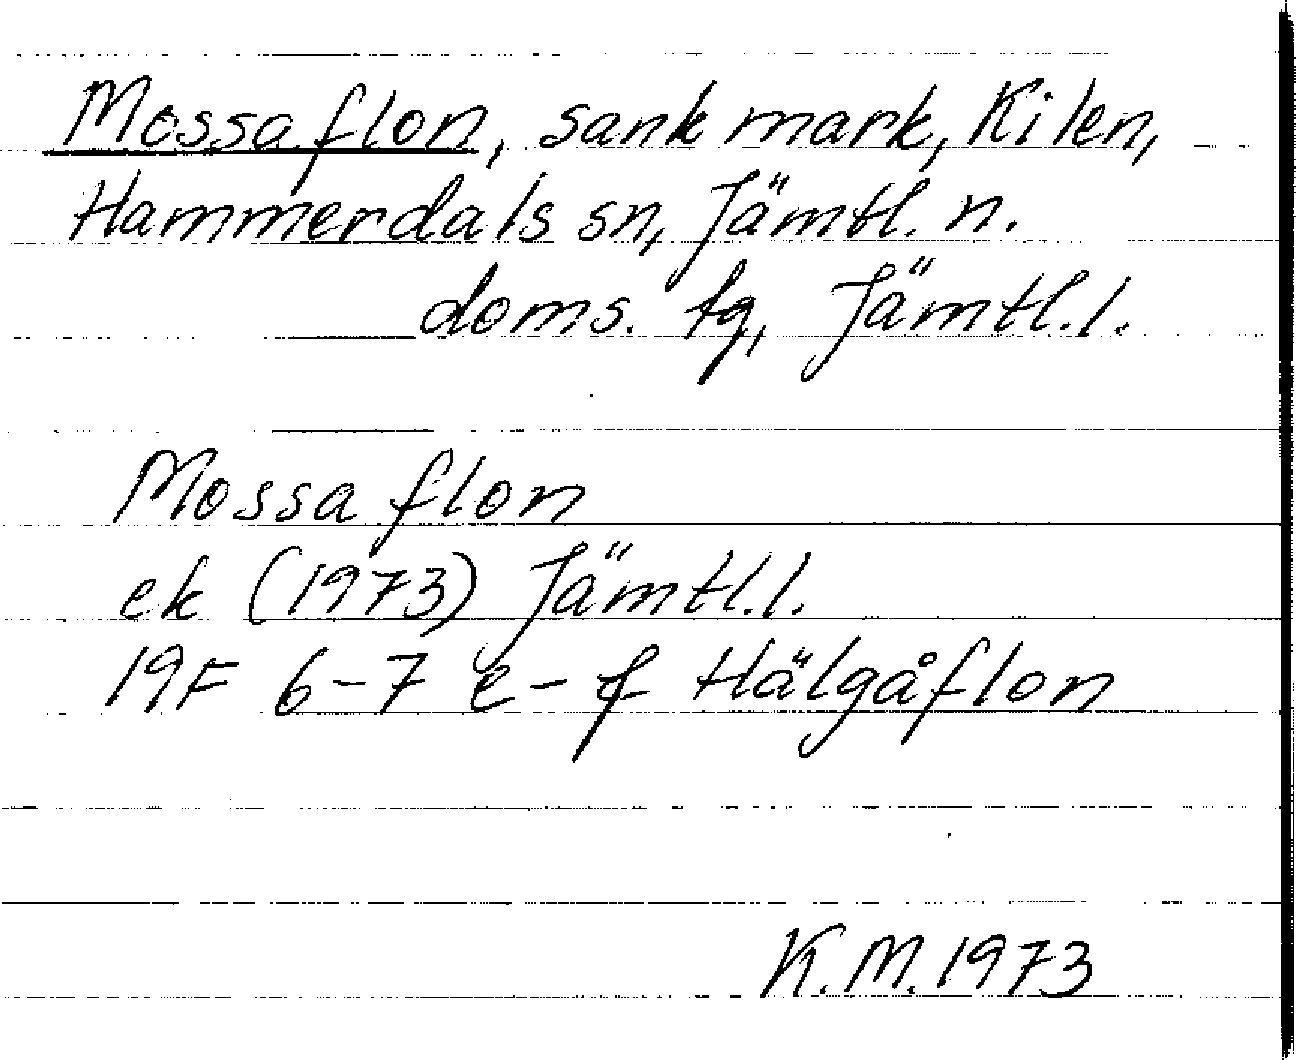 Mossaflon, sank mark, Kilen,
Hammerdals sn, Jämtl. n.
doms. tg, Jämtl.l.
Mossaflon
ek (1973) Jämtl.l.
19F 6-7 e-f Hälgåflon
K.M.1973